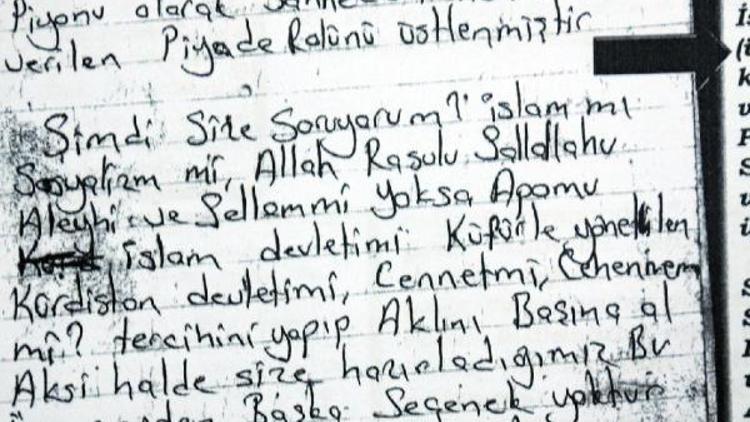 Piyonu olarak
verilen Piyade Rolünü üstlenmiştir
Şimdi Size Soruyorum? islam mı
Sosyalizm mi, Allah Rasulu Sallallahu
Aleyhi ve Sellemmi yoksa Apomu
islam devletimi Küfürle yönetilen
Kürdistan devletimi, Cennetmi, Cehennem
mi? tercihini yapıp Aklını Başına al
Aksi halde size hazırladığımız Bu
Başka Seçenek yoktur